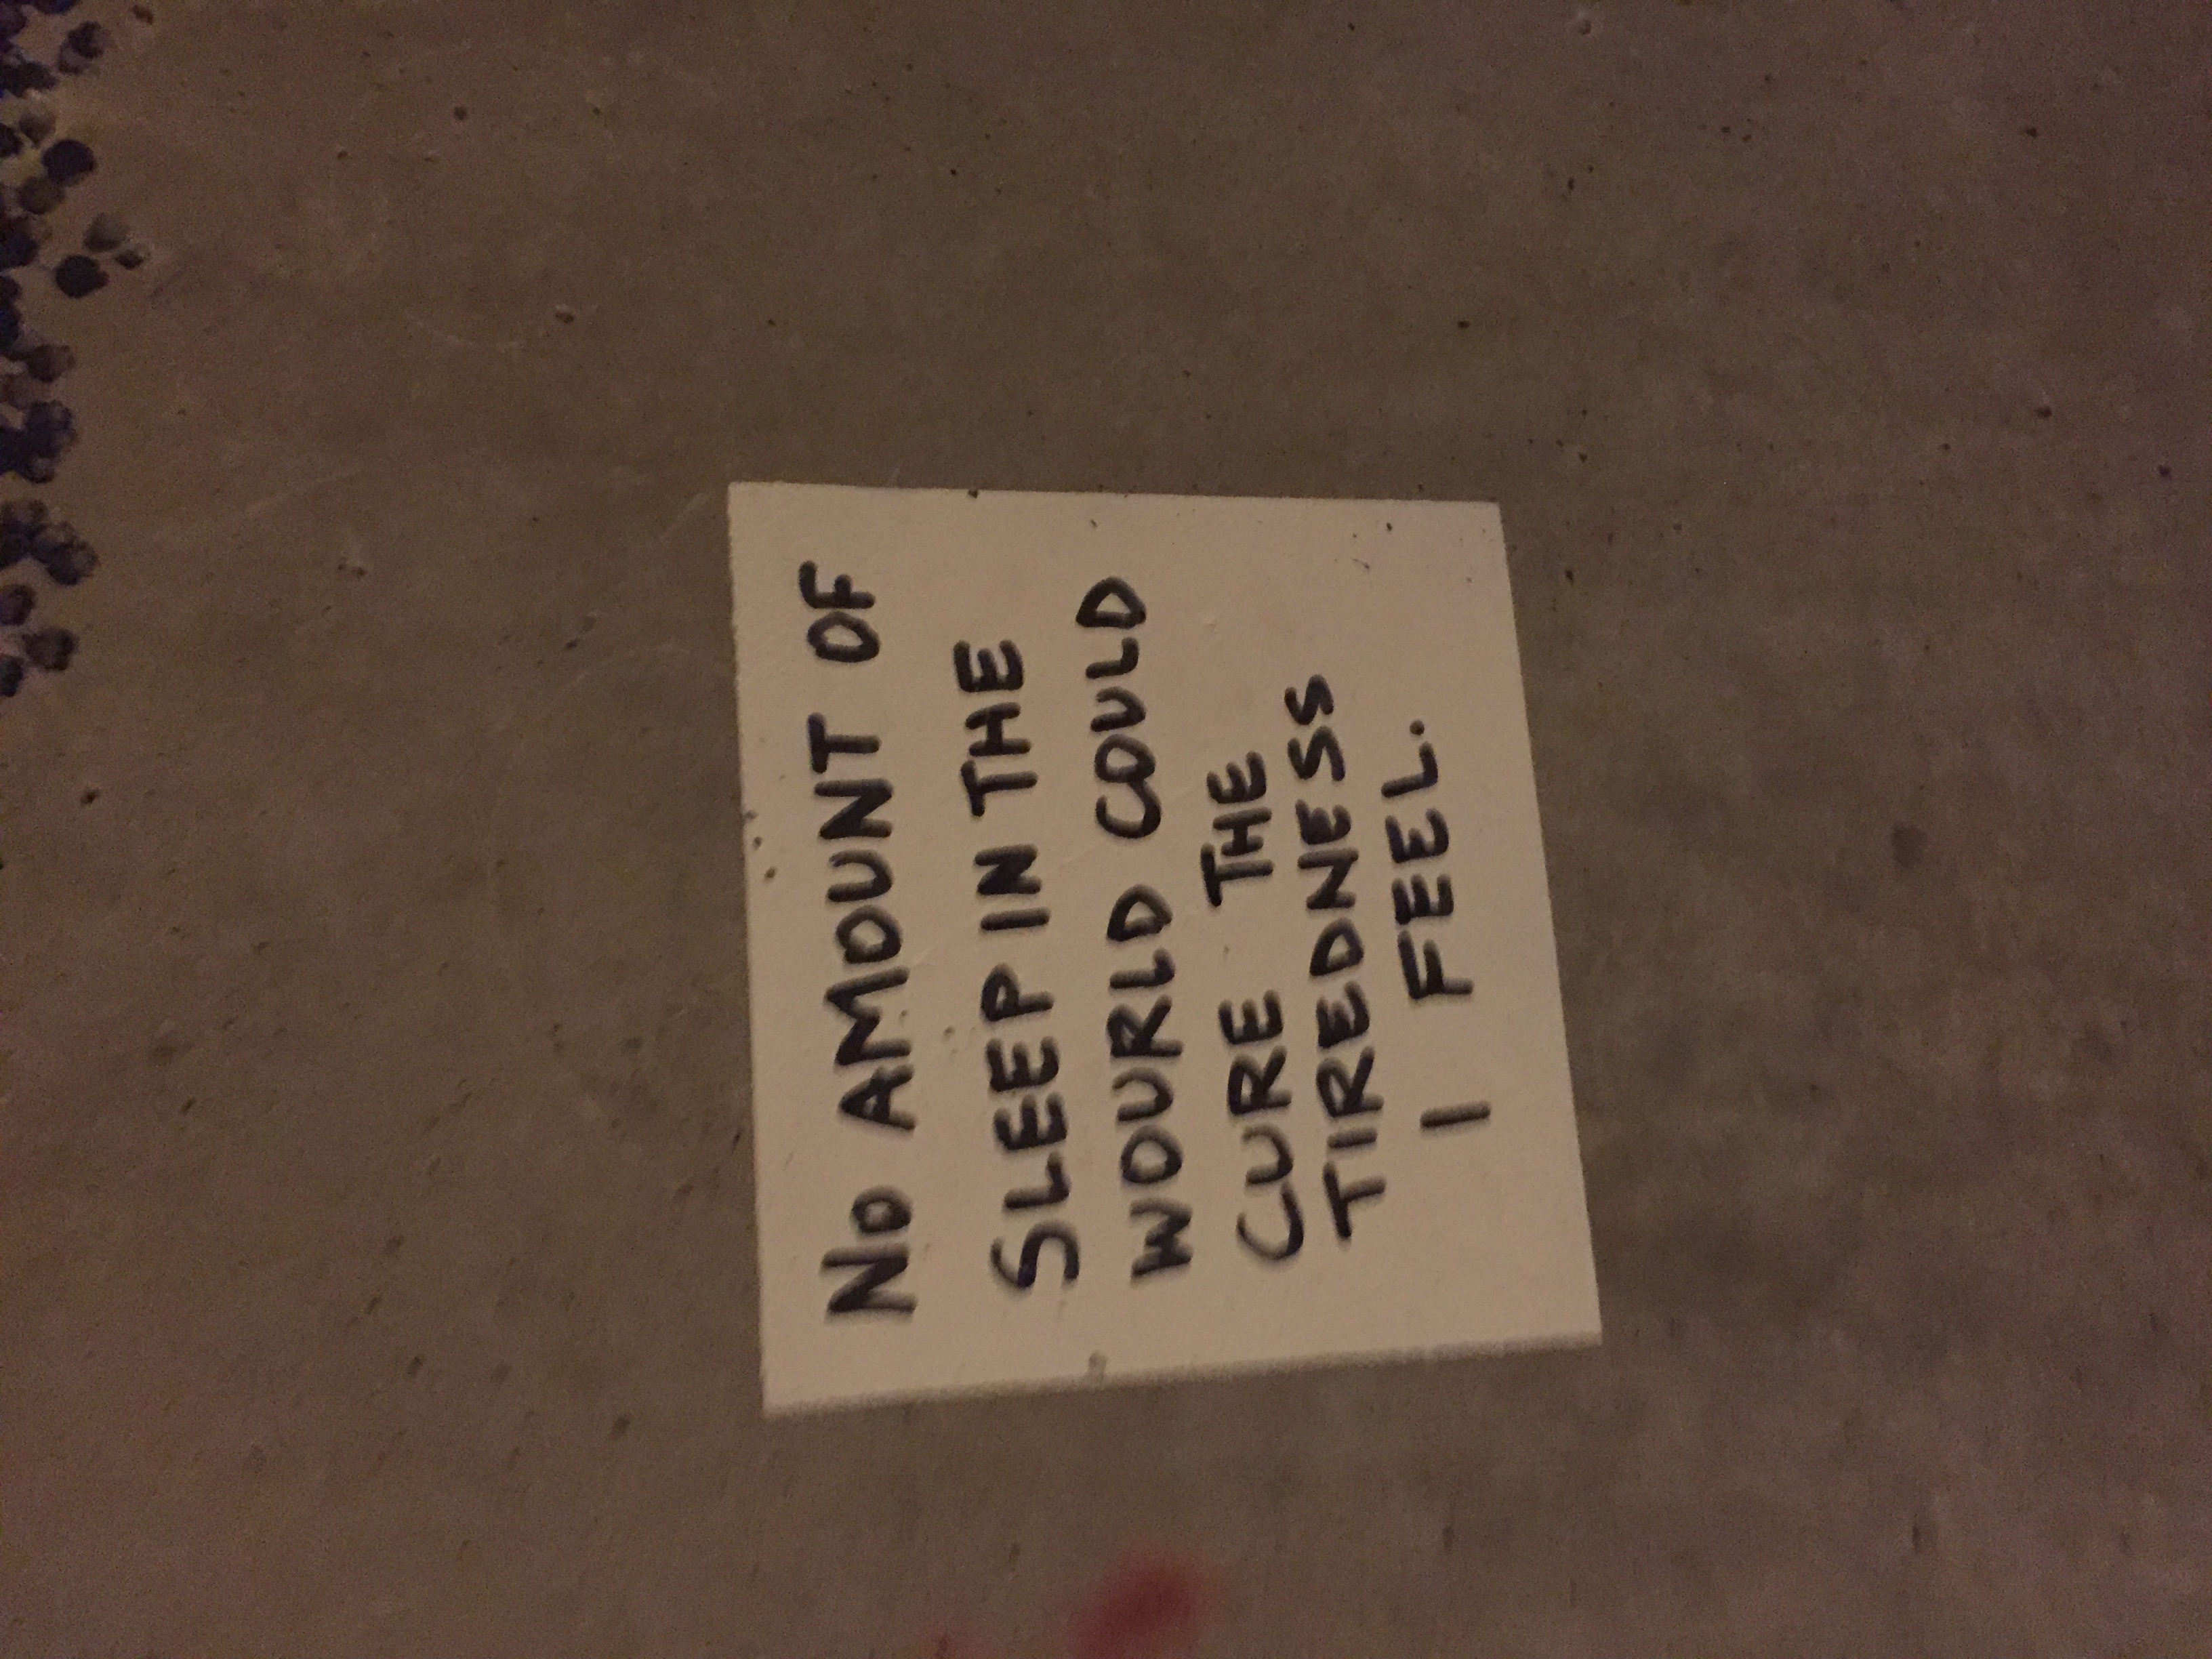 NO AMOUNT OF
SLEEP IN THE
WOURLD COULD
CURE THE
TIREDNESS
I FEEL.